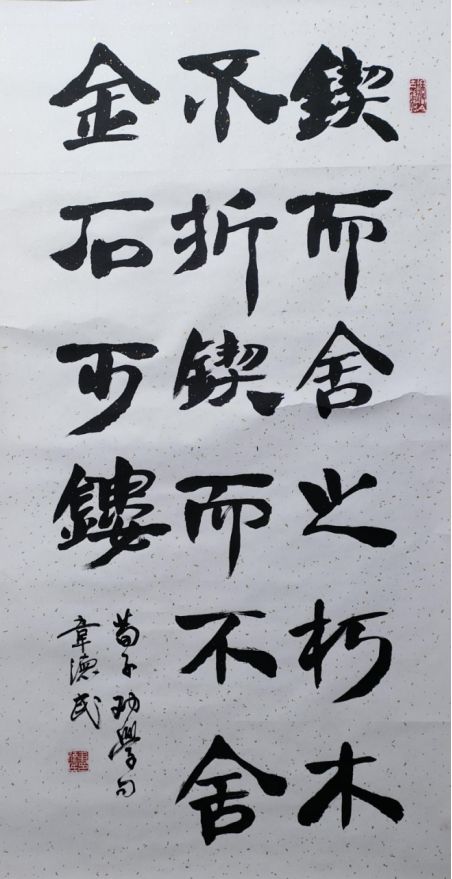 鍥而舍之朽木
不折鍥而不舍
金石可鏤
荀子劝學句
章德民